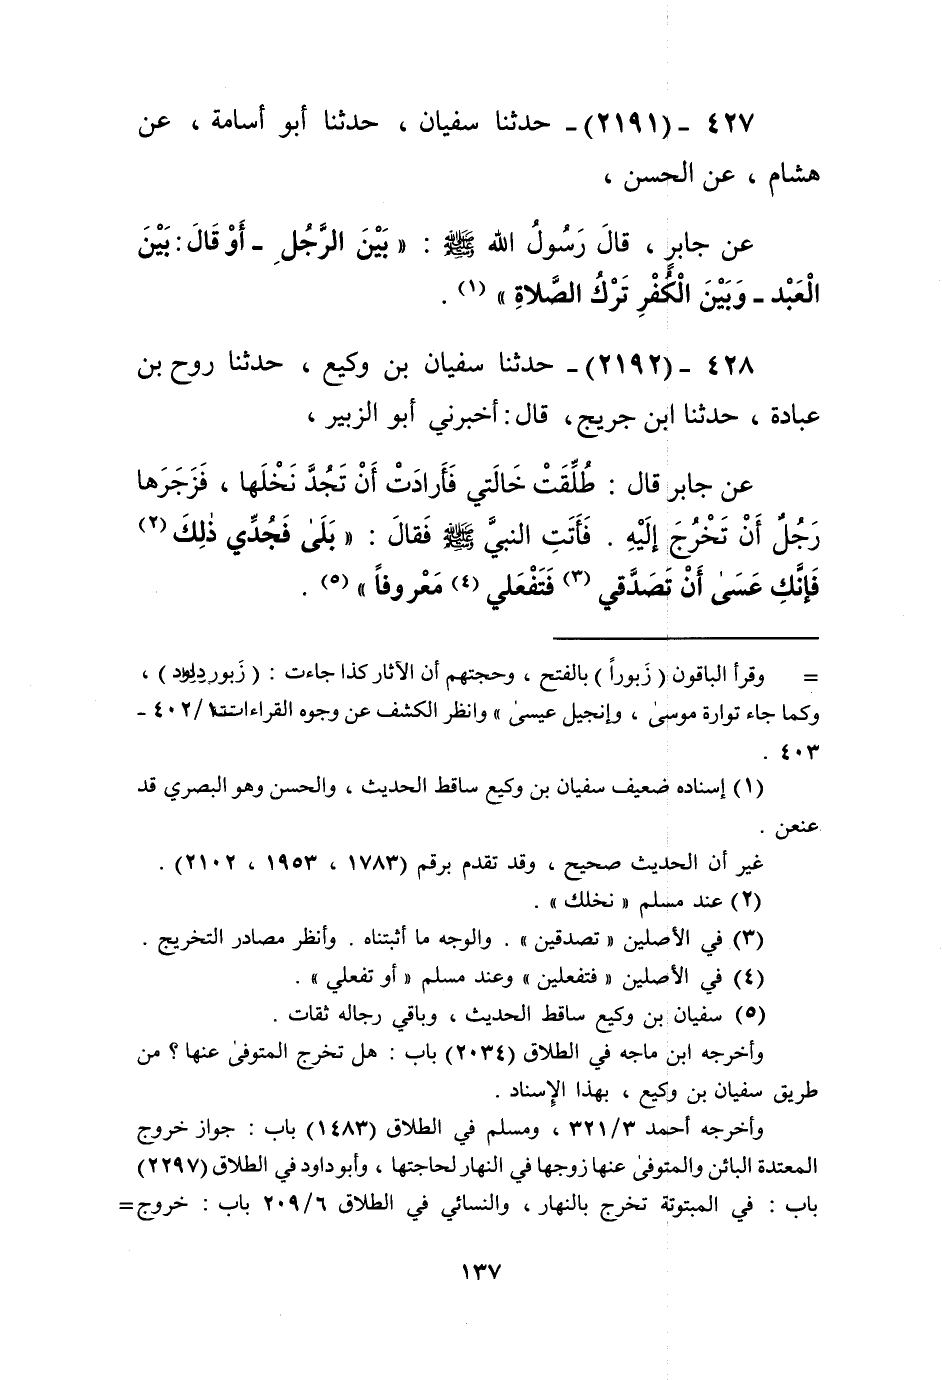 ٤٢٧ ـ (٢١٩١) ـ حدثنا سفيان ، حدثنا أبو أسامة ، عن
هشام ، عن الحسن ،
عن جابرٍ ، قالَ رَسُولُ الله ﷺ : « بَيْنَ الرَّجُلِ ـ أَوْ قَالَ : بَيْنَ
الْعَبْد ـ وَبَيْنَ الْكُفْرِ تَرْكُ الصَّلاةِ » (١) .
٤٢٨ ـ (٢١٩٢) ـ حدثنا سفيان بن وكيع ، حدثنا روح بن
عبادة ، حدثنا ابن جريج، قال : أخبرني أبو الزبير ،
عن جابر قال : طُلِّقَتْ خَالَتي فَأَرادَتْ أَنْ تَجُدَّ نَخْلَها ، فَزَجَرَها
رَجُلٌ أَنْ تَخْرُجَ إِلَيْهِ . فَأَتَتِ النبيَّ ﷺ فَقالَ : « بَلَىٰ فَجُدِّي ذٰلِكَ (٢)
فَإِنَّكِ عَسَىٰ أَنْ تَصَدَّقي (٣) فَتَفْعَلي (٤) مَعْروفاً » (٥) .
= وقرأ الباقون ( زَبوراً ) بالفتح ، وحجتهم أن الآثار كذا جاءت : ( زَبور داود ) ،
وكما جاء توارة موسىٰ ، وإنجيل عيسىٰ » وانظر الكشف عن وجوه القراءات ١/ ٤٠٢ ـ
٤٠٣ .
(١) إسناده ضعيف سفيان بن وكيع ساقط الحديث ، والحسن وهو البصري قد
عنعن .
غير أن الحديث صحيح ، وقد تقدم برقم (١٧٨٣ ، ١٩٥٣ ، ٢١٠٢) .
(٢) عند مسلم « نخلك » .
(٣) في الأصلين « تصدقين » . والوجه ما أثبتناه . وأنظر مصادر التخريج .
(٤) في الأصلين « فتفعلين » وعند مسلم « أو تفعلي » .
(٥) سفيان بن وكيع ساقط الحديث ، وباقي رجاله ثقات .
وأخرجه ابن ماجه في الطلاق (٢٠٣٤) باب : هل تخرج المتوفىٰ عنها ؟ من
طريق سفيان بن وكيع ، بهذا الإسناد .
وأخرجه أحمد ٣٢١/٣ ، ومسلم في الطلاق (١٤٨٣) باب : جواز خروج
المعتدة البائن والمتوفىٰ عنها زوجها في النهار لحاجتها ، وأبو داود في الطلاق (٢٢٩٧)
باب : في المبتوتة تخرج بالنهار ، والنسائي في الطلاق ٢٠٩/٦ باب : خروج =
١٣٧